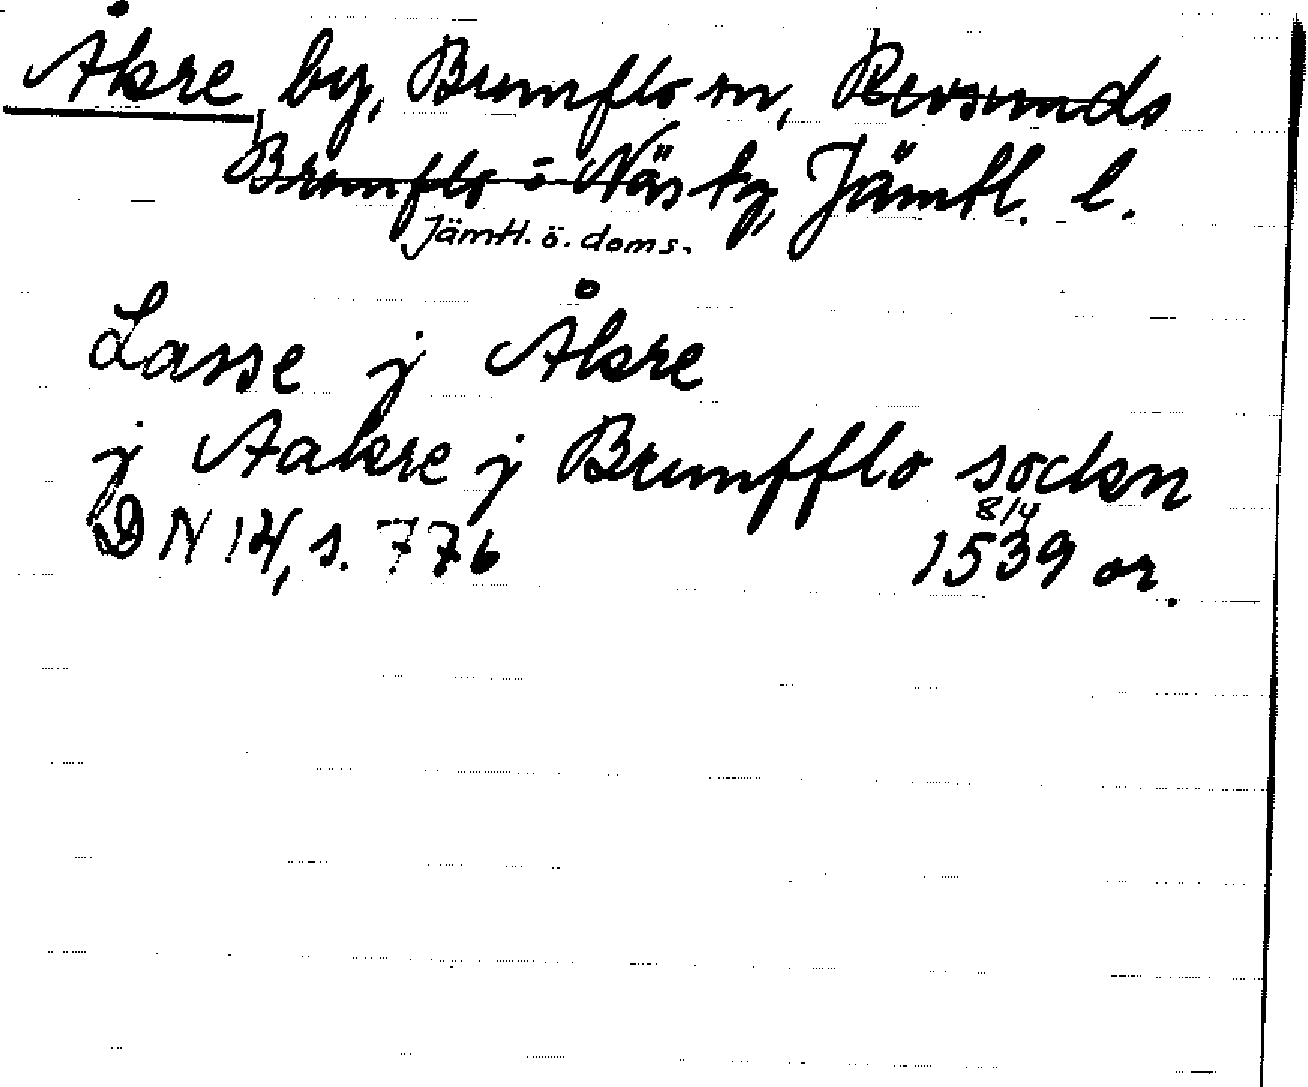 Åkre by, Brunflo sn, Revsunds
Brunflo o Näs tg, Jämtl. l.
Jämtl. ö. doms.
Lasse j Åkre
j Aakre j Brunfflo sockn
8/4
DN 14, s. 776 1539 or.